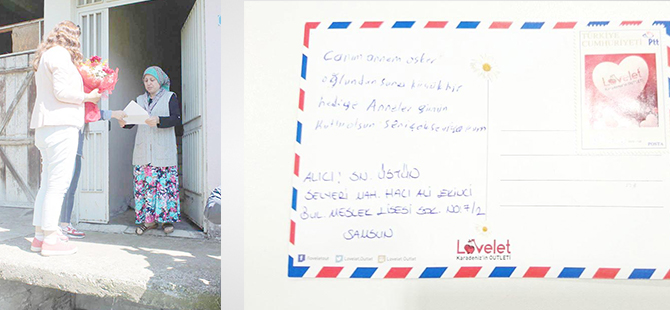 Canım annem asker
oğlundan sana küçük bir
hediye Anneler günün
kutlu olsun seni çok seviyorum
ALICI: SN. ÜSTÜN
SELYERİ MAH. HACI ALİ EKİNCİ
BUL MESLEK LİSESİ SOK. NO:7/2
SAMSUN
TÜRKİYE
CUMHURİYETİ
Ptt
Lovelet
POSTA
Lovelet
Karadeniz'in OUTLETİ
Lovelet.Outlet
Lovelet.Outlet